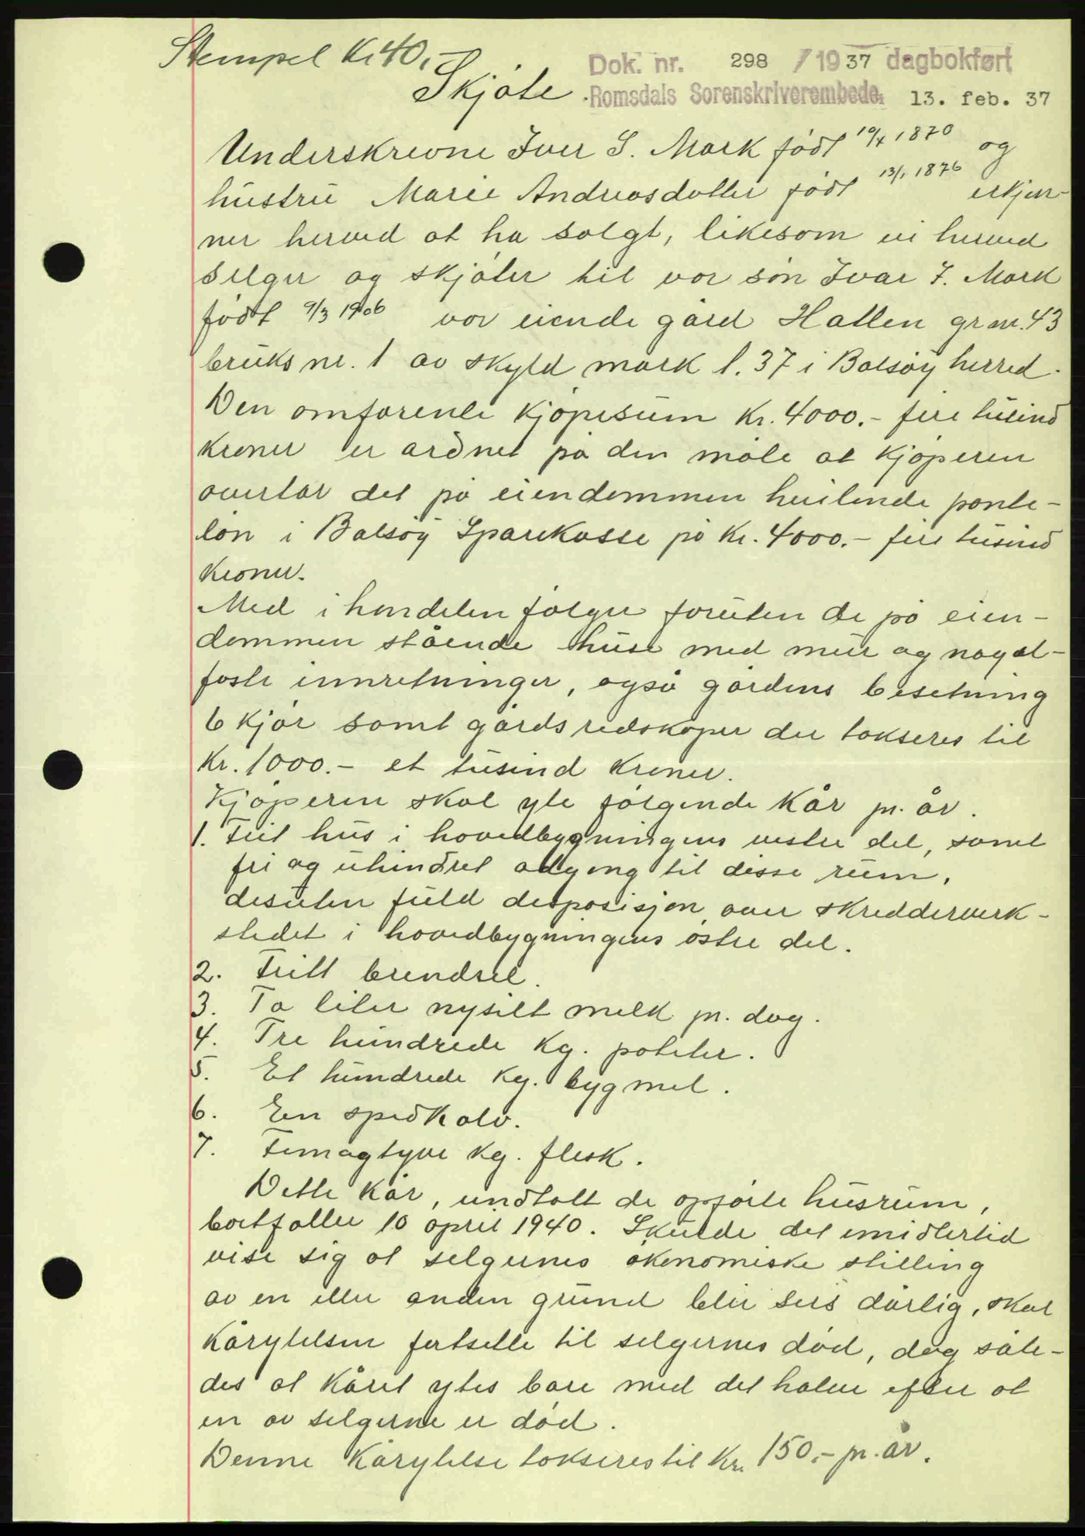 Stempel Kr. 40,-
Dok. nr. 298 / 1937 dagbokført
Skjøte
Romsdals Sorenskriverembede, 13. feb. 37
Underskrevne Iver S. Mork født 10/4 1870 og
hustru Marie Andreasdotter født 13/1 1876 erkjen-
ner herved at ha solgt, likesom vi herved
selger og skjøter til vor søn Ivar I. Mork
født 9/3 1906 vor eiende gård Hatlen gr.nr. 43
bruks nr. 1 av skyld mark 1.37 i Bolsøy herred.
Den omforente kjøpesum Kr. 4000.- fire tusind
kroner er ordnet på den måte at kjøperen
overtar det på eiendommen heilende pante-
lån i Bolsøy Sparekasse på kr. 4000.- fire tusind
kroner.
Med i handelen følger foruten de på eien-
dommen stående huse med mur og nagel-
faste innretninger, også gårdens besetning
6 kjør samt gårdsredskaper der takseres til
Kr. 1000.- et tusind kroner.
Kjøperen skal yte følgende kår pr. år.
1. Frit hus i hovedbygningens vestre del, samt
fri og uhindret adgang til disse rum,
desuten fuld desposisjon over skredderverk-
stedet i hovedbygningens østre del.
2. Fritt brendsel.
3. To liter nysilt melk pr. dag.
4. Tre hundrede kg. poteter.
5. Et hundrede kg. bygmel.
6. En spedkalv.
7. Femogtyve kg. flesk.
Dette kår, undtatt de opførte husrum,
bortfaller 10 april 1940. Skulde det imidlertid
vise sig at selgernes økonomiske stilling
av en eller anden grund blir sers dårlig, skal
kårytelsen fortsette til selgernes død, dog såle-
des at kåret ytes bare med det halve efter at
en av selgerne er død.
Denne kårytelse takseres til Kr. 150,- pr. år.